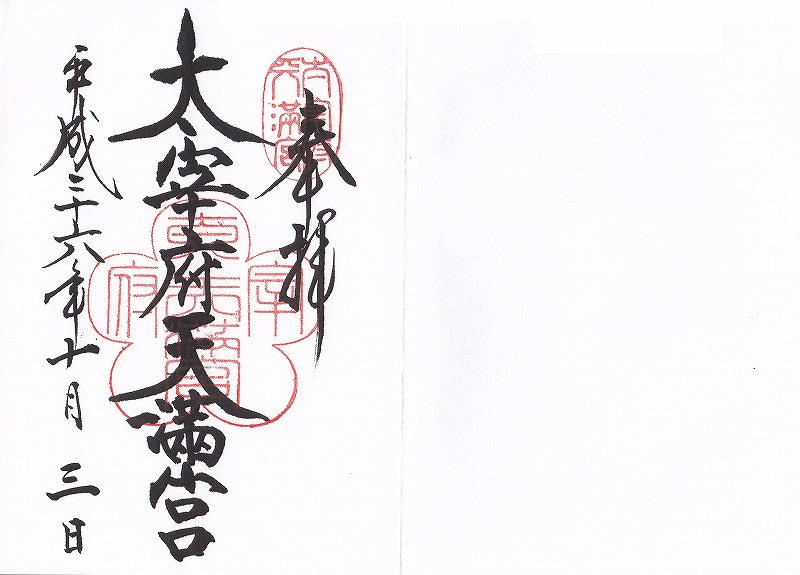 奉拝
太宰府天満宮
平成二十六年十月三日
太宰府
天満宮